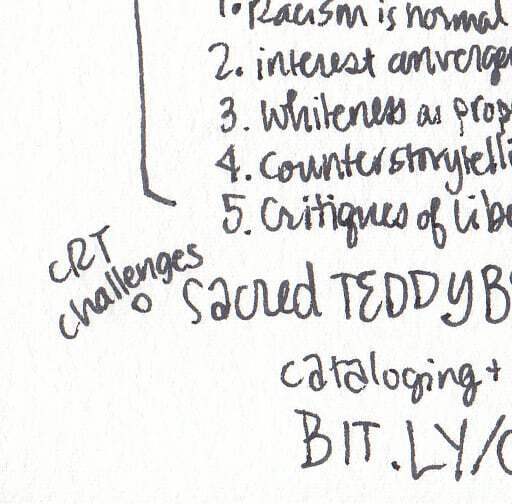 1. Racism is normal
2. interest converge
3. Whiteness as prop
4. Counterstorytelli
5. Critiques of Libe
CRT
challenges
Sacred TEDDY B
cataloging +
BIT.LY/